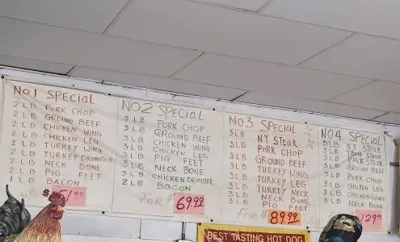 No 1 SPECIAL
2 LB PORK CHOP
2 LB GROUND BEEF
2 LB CHICKEN WING
2 LB CHICKEN LEG
2 LB TURKEY WING
2 LB TURKEY
2 LB NECK BONE
2 LB PIG FEET
2 LB BACON
No 2 SPECIAL
3 LB PORK CHOP
3 LB GROUND BEEF
3 LB CHICKEN WING
3 LB CHICKEN LEG
3 LB PIG FEET
3 LB NECK BONE
3 LB CHICKEN
2 LB BACON
FOR 69.99
No 3 SPECIAL
3 LB NY STEAK
3 LB PORK CHOP
3 LB GROUND BEEF
3 LB CHICKEN WING
3 LB CHICKEN LEG
3 LB TURKEY WING
3 LB TURKEY NECK
3 LB NECK BONE
3 LB PIG FEET
FOR 89.99
No 4 SPECIAL
NY STEAK
PORK CHOP
GROUND BEEF
CHICKEN
CHICKEN LEG
TURKEY
PIG FEET
NECK BONE
129
BEST TASTING HOT DOG